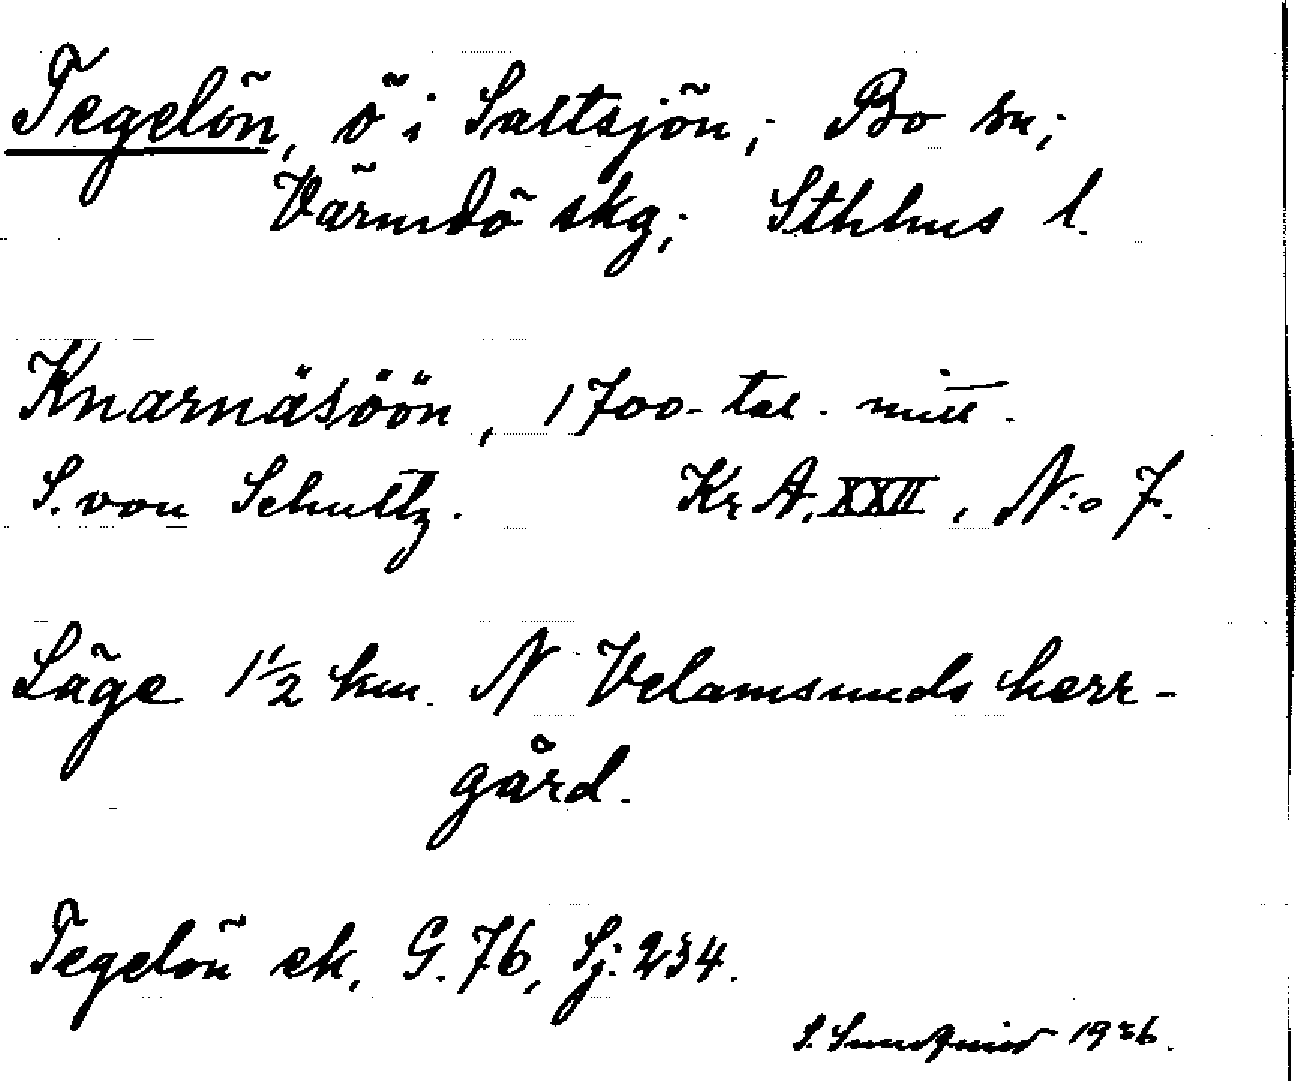 Tegelön, ö i Saltsjön; Bo sn;
Värmdö skg; Sthlms l.
Knarnäsöön, 1700-tal. mitt.
S. von Schultz. Kr. A. XXII, N:o 7.
Läge 1½ km. N Velamsunds herr-
gård.
Tegelön ek. G. 76, Sj. 234.
S. Sundquist 1936.